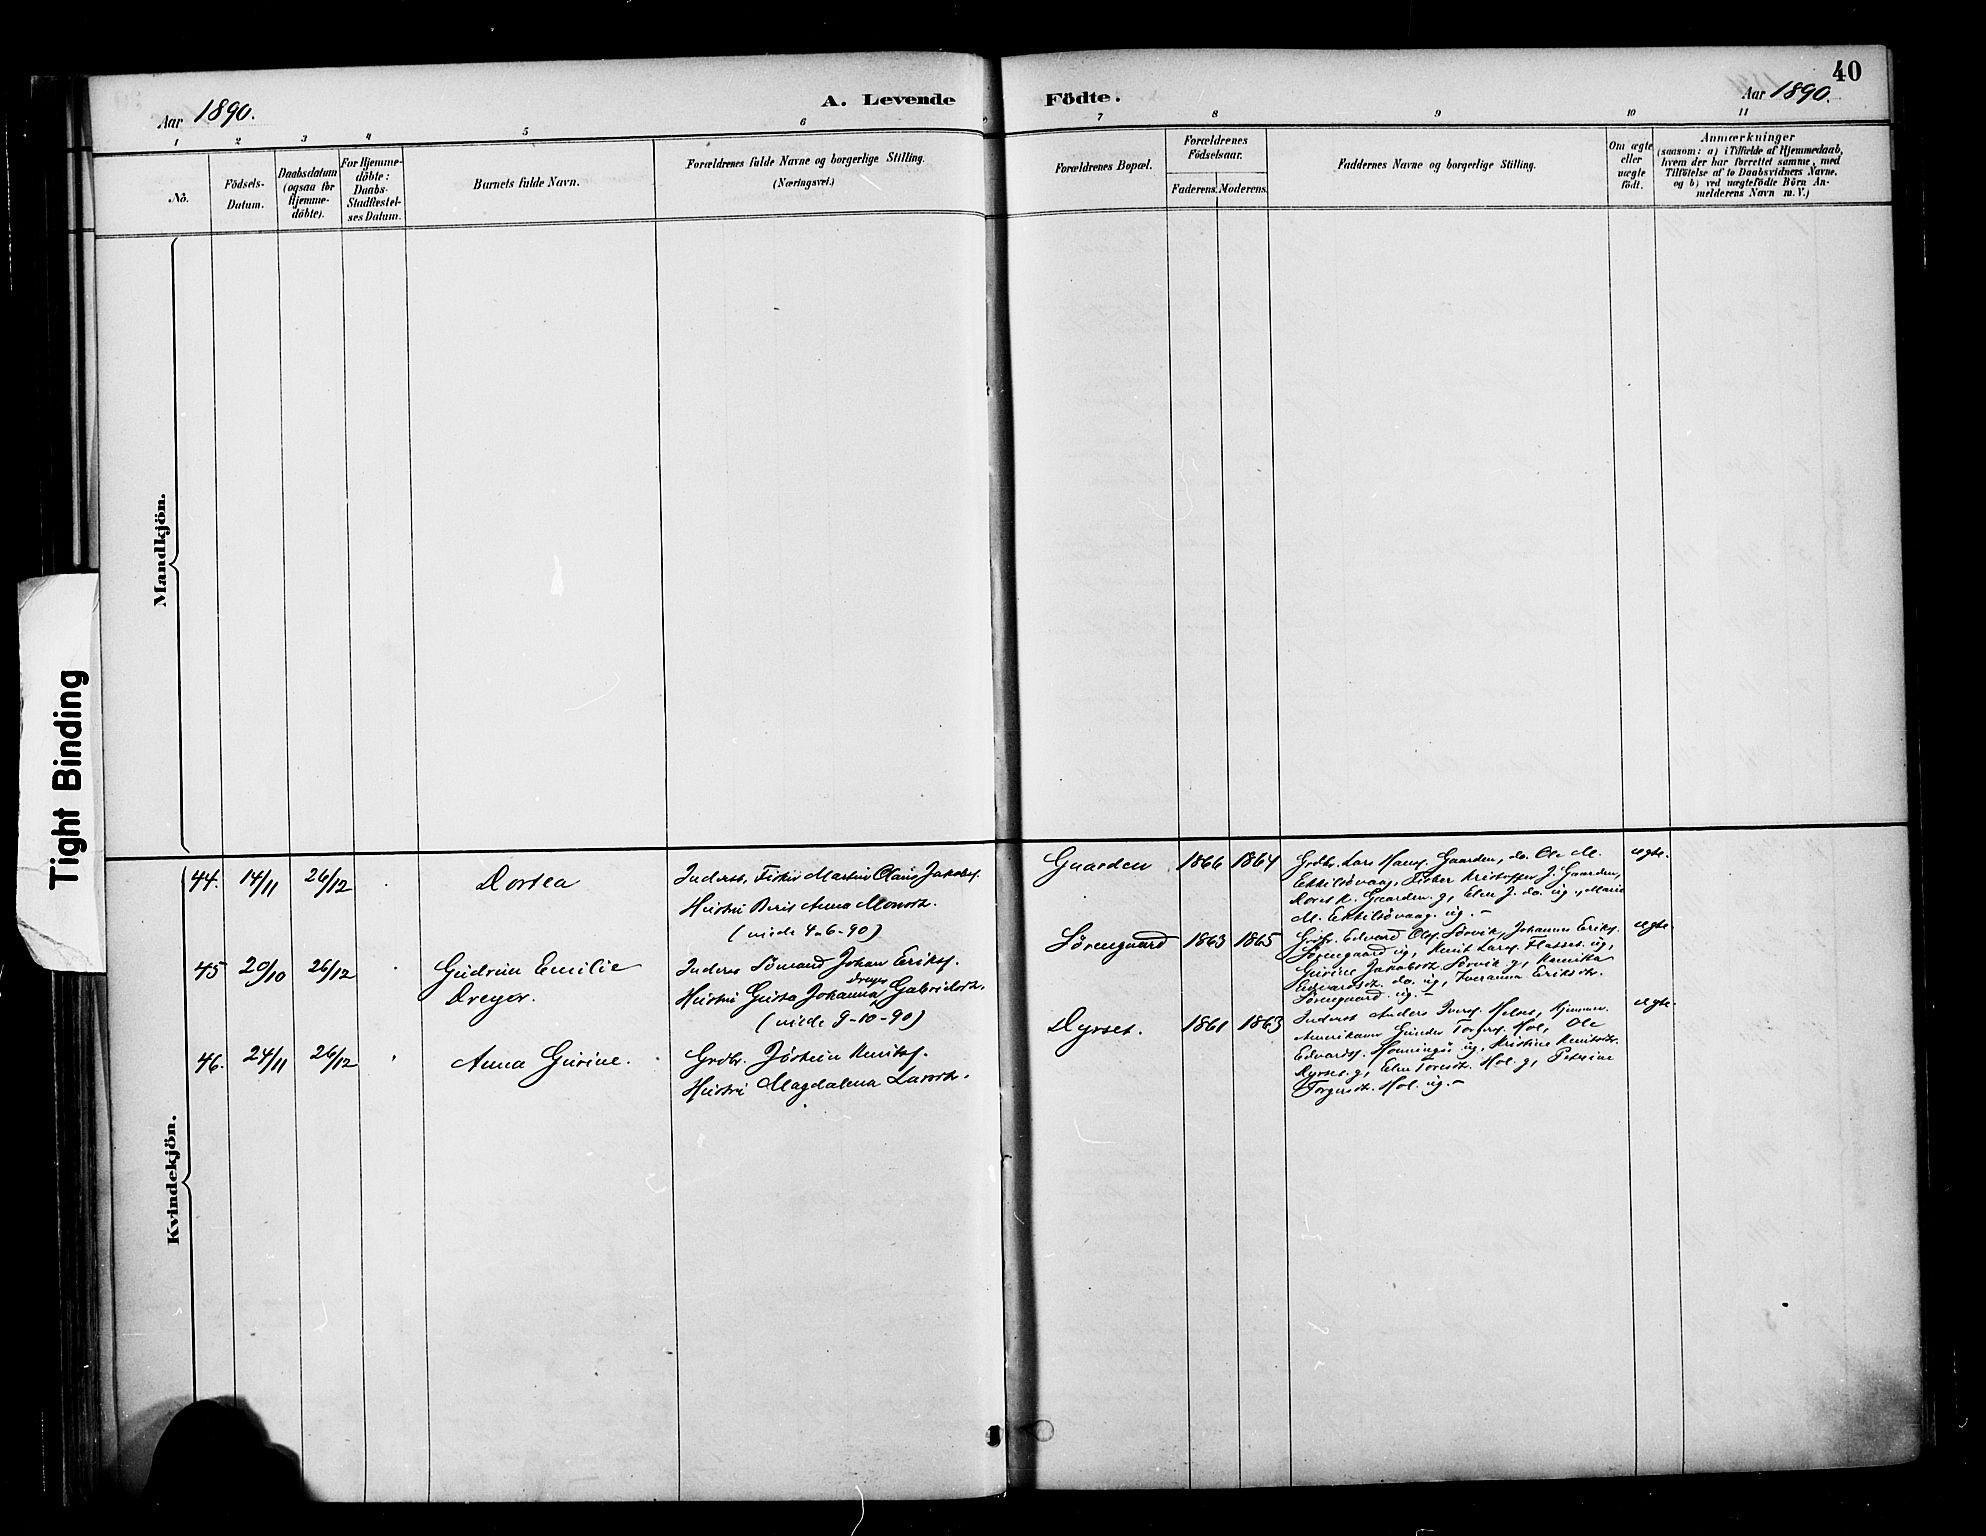 40
Aar 1890.
A. Levende Födte.
Aar 1890.
1 2 3 4 5 6 7 8 9 10 11
No.
Födsels-Datum.
Daabsdatum (ogsaa for Hjemme-döbte).
For Hjemme-döbte: Daabs-Stadfæstel-ses Datum.
Barnets fulde Navn.
Forældrenes fulde Navne og borgerlige Stilling.
(Næringsvei.)
Forældrenes Bopæl.
Forældrenes Födselsaar.
Faderens. Moderens.
Faddernes Navne og borgerlige Stilling.
Om ægte eller uægte födt.
Anmærkninger
(saasom: a) i Tilfælde af Hjemmedaab,
hvem der har forrettet samme, med
Tilföielse af to Daabsvidners Navne,
og b) ved uægtefödte Börn An-
melderens Navn m. V.)
Mandkjön.
Tight Binding
Kvindekjön.
44. 14/11 26/12 Dortea
Inderst, Fisker Martin Olaus Jakobs.
Hustru Berit Anna Monsdt.
(viede 4-6-90)
Gaarden 1866 1864
Grdbr. Lars Hans. Gaarden, do. Ole M.
Ekkilsövaag, Fisker Kristoffer J. Gaarden,
K. Gaarden g, Elen J. do. ug., Marie
M. Ekkilsövaag. ug.-
ægte.
45 20/10 26/12 Gudrun Emilie
Dreyer.
Inderst Sömand Johan Eriks.
Hustru Gusta Johanna Dreyer Gabrielsdt.
(viede 9-10-90)
Sörengaard 1863 1865
Grdbr. Edvard Ols. Sörvik, Johannes Eriks.
Sörengaard ug, Knut Lars. Flasset ug,
Gurine Jakobsdt. Sörvik g, Kanika
Edvardsdt. do. ug, Iveranna Eriksdt.
Sörengaard ug.-
ægte-
46. 24/11 26/12 Anna Gurine.
Grdbr. Jöstein Knuts.
Hustru Magdalena Larsdt.
Dyrset. 1861 1863
Inderst Anders Ivers. Hjemmv.
Amerikaner Gunder Torgers. Hol, Ole
Edvards. Honningsö ug, Kristine Knutsdt.
Dyrset. g, Elen Toresdt. Hol. g, Petrine
Torgersdt. Hol. ug.-
ægte-